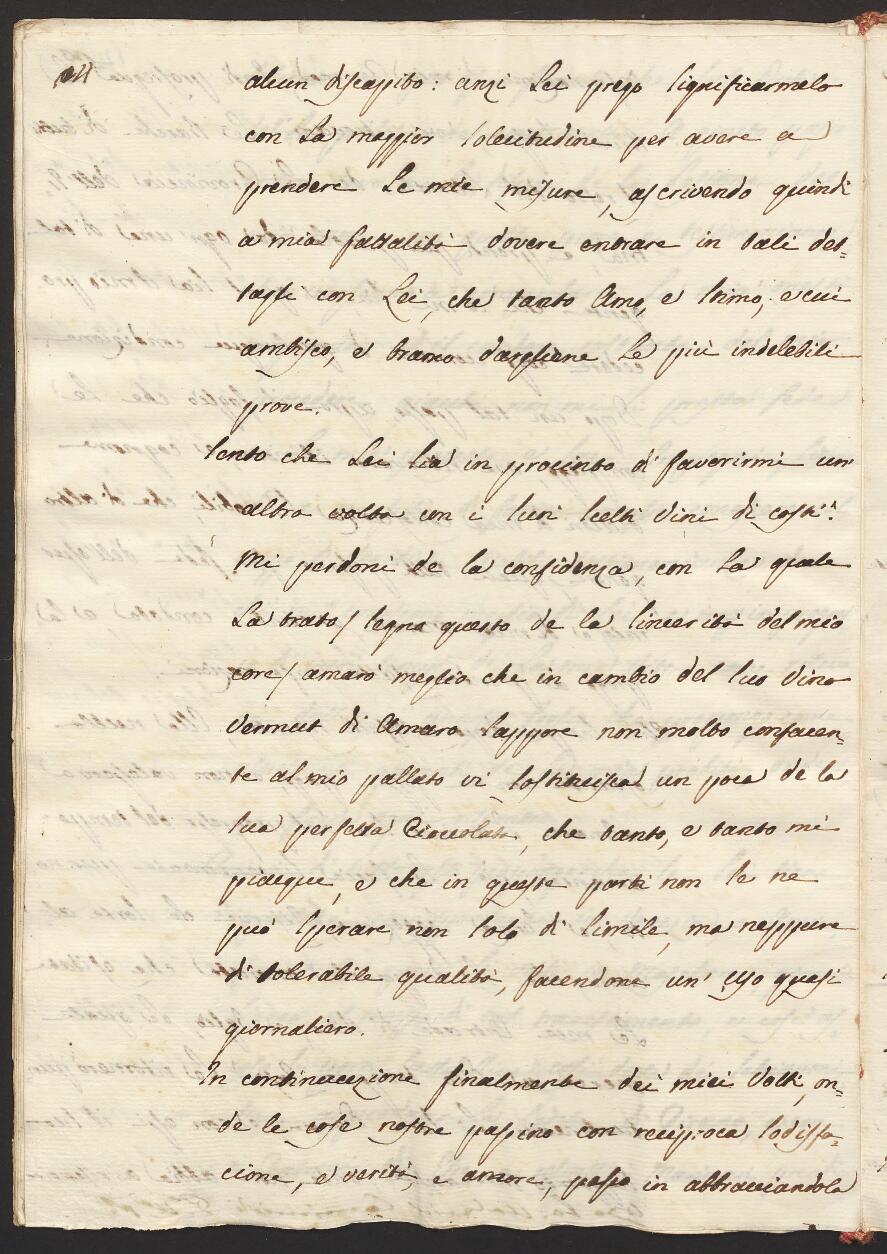 alcun discapito: anzi Lei prego significarmelo
con la maggior solecitudine per avere a
prendere le mie misure, ascrivendo quindi
a mia fattalità dovere entrare in tali det-
tagli con Lei, che tanto Amo, e stimo, e cui
ambisco, e bramo dargliene le più indelebili
prove.
Sento che Lei sia in procinto di faverirmi un'
altra volta con i suoi scelti vini di costì.
Mi perdoni de la confidenza, con la quale
La trato / segna questo de la sincerità del mio
core / amarò meglio che in cambio del suo vino
vermut di Amaro sappore non molto confacen-
te al mio pallato vi sostituisca un poca de la
sua perfetta Cioccolata, che tanto, e tanto mi
piacque, e che in queste parti non se ne
può sperare non solo di simile, ma neppure
di tolerabile qualità, facendone un' uso quasi
giornaliero.
In continuazione finalmente dei miei Volti, on-
de le cose nostre passino con reciproca sodisfa-
cione, e verità, e amore, passo in abbracciandola